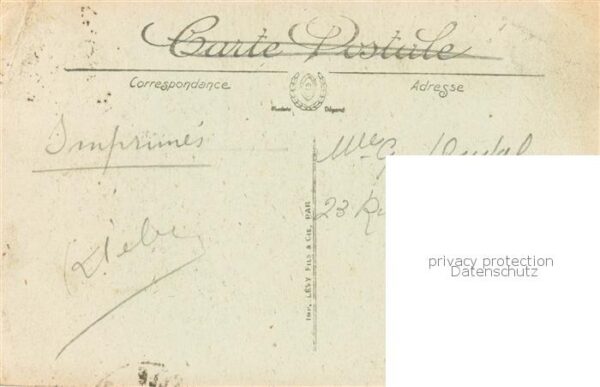 Carte Postale
Correspondance
Adresse
Modèle Déposé
Imprimés
Mlle G.
23 R
Imp. LÉVY FILS & Cie, PAR
privacy protection
Datenschutz